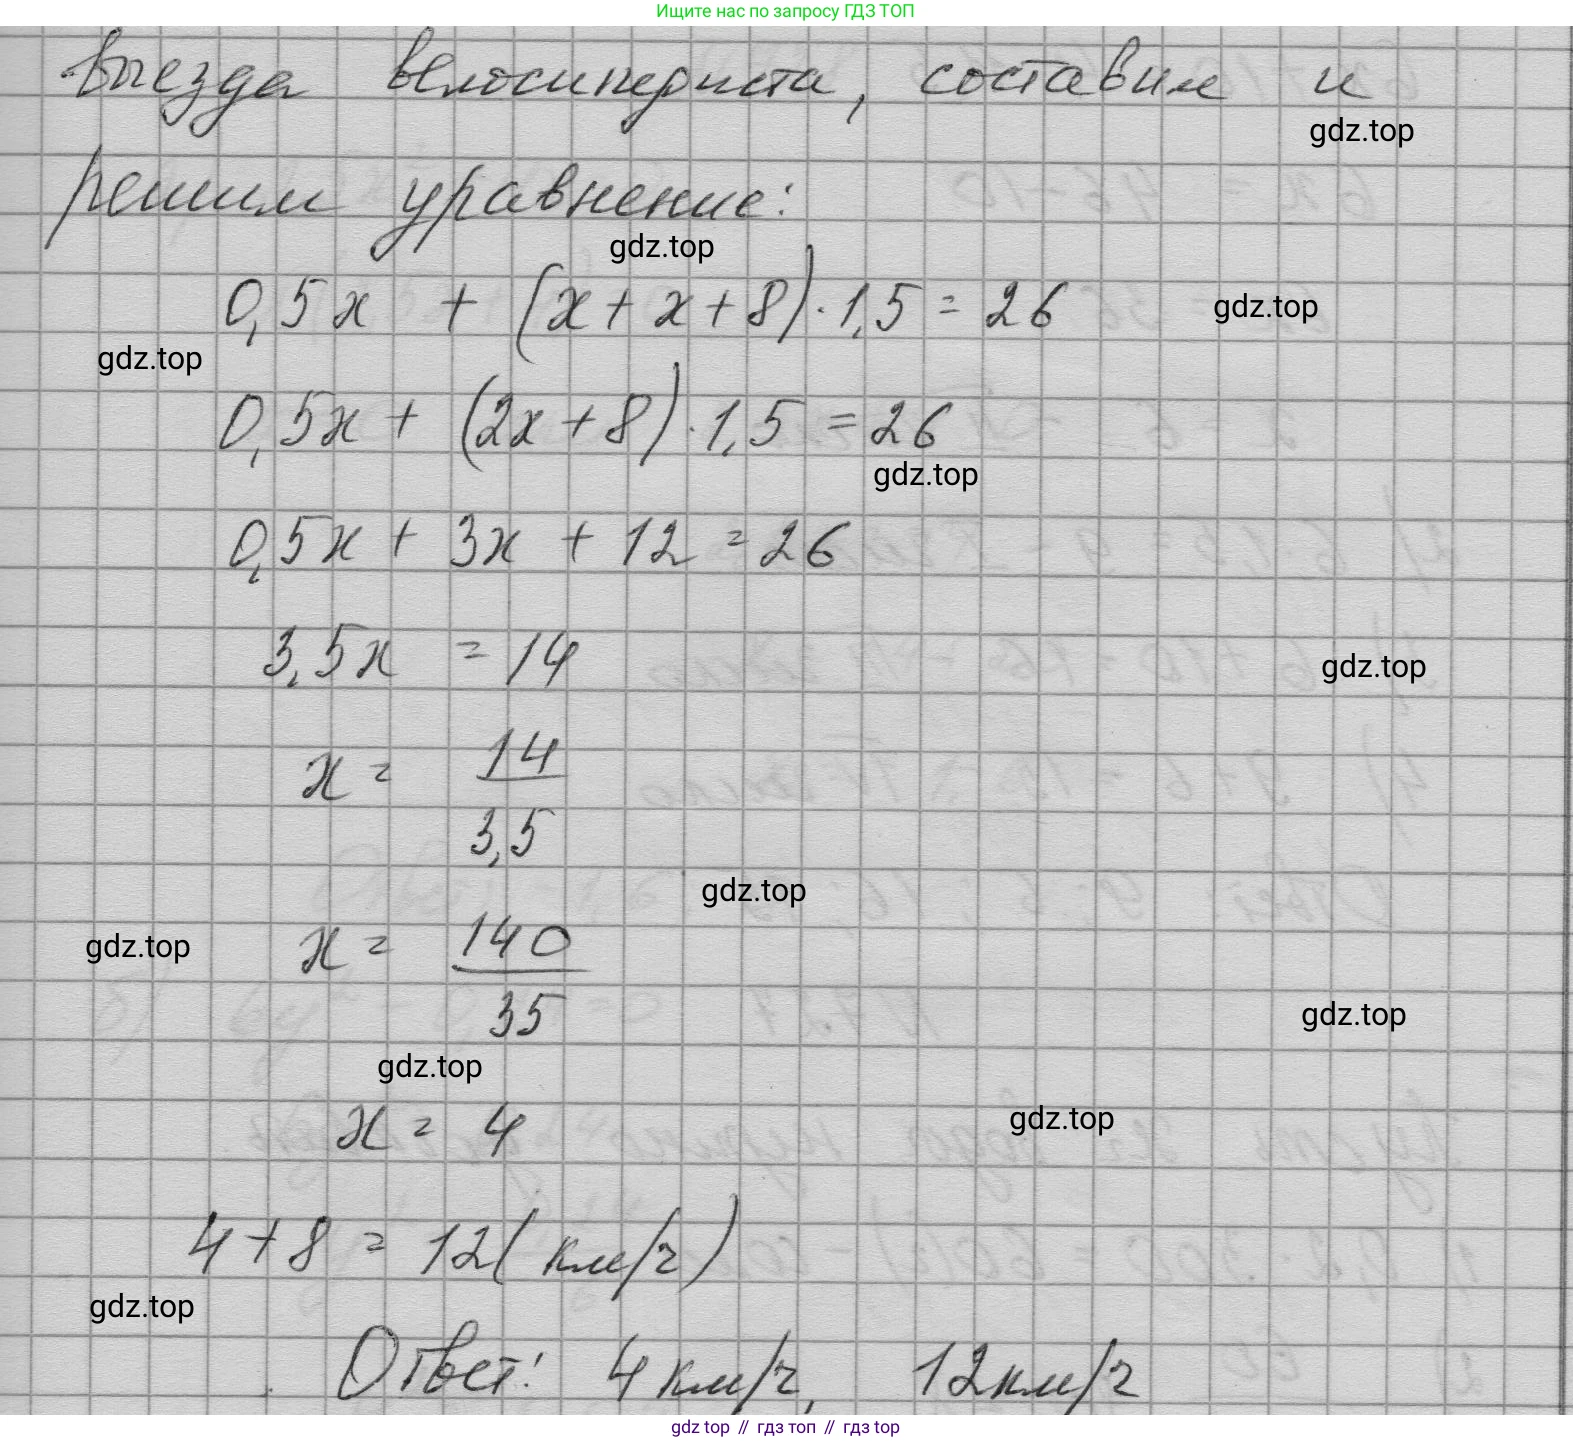 Ищите нас по запросу ГДЗ ТОП
выезда велосипедиста, составим и
gdz.top
решим уравнение:
gdz.top
0,5x + (x + x + 8) · 1,5 = 26
gdz.top
gdz.top
0,5x + (2x + 8) · 1,5 = 26
gdz.top
0,5x + 3x + 12 = 26
3,5x = 14
gdz.top
x = 14/3,5
gdz.top
gdz.top
x = 140/35
gdz.top
gdz.top
gdz.top
x = 4
4 + 8 = 12 (км/ч)
gdz.top
Ответ: 4 км/ч, 12 км/ч
gdz top // гдз топ // гдз top